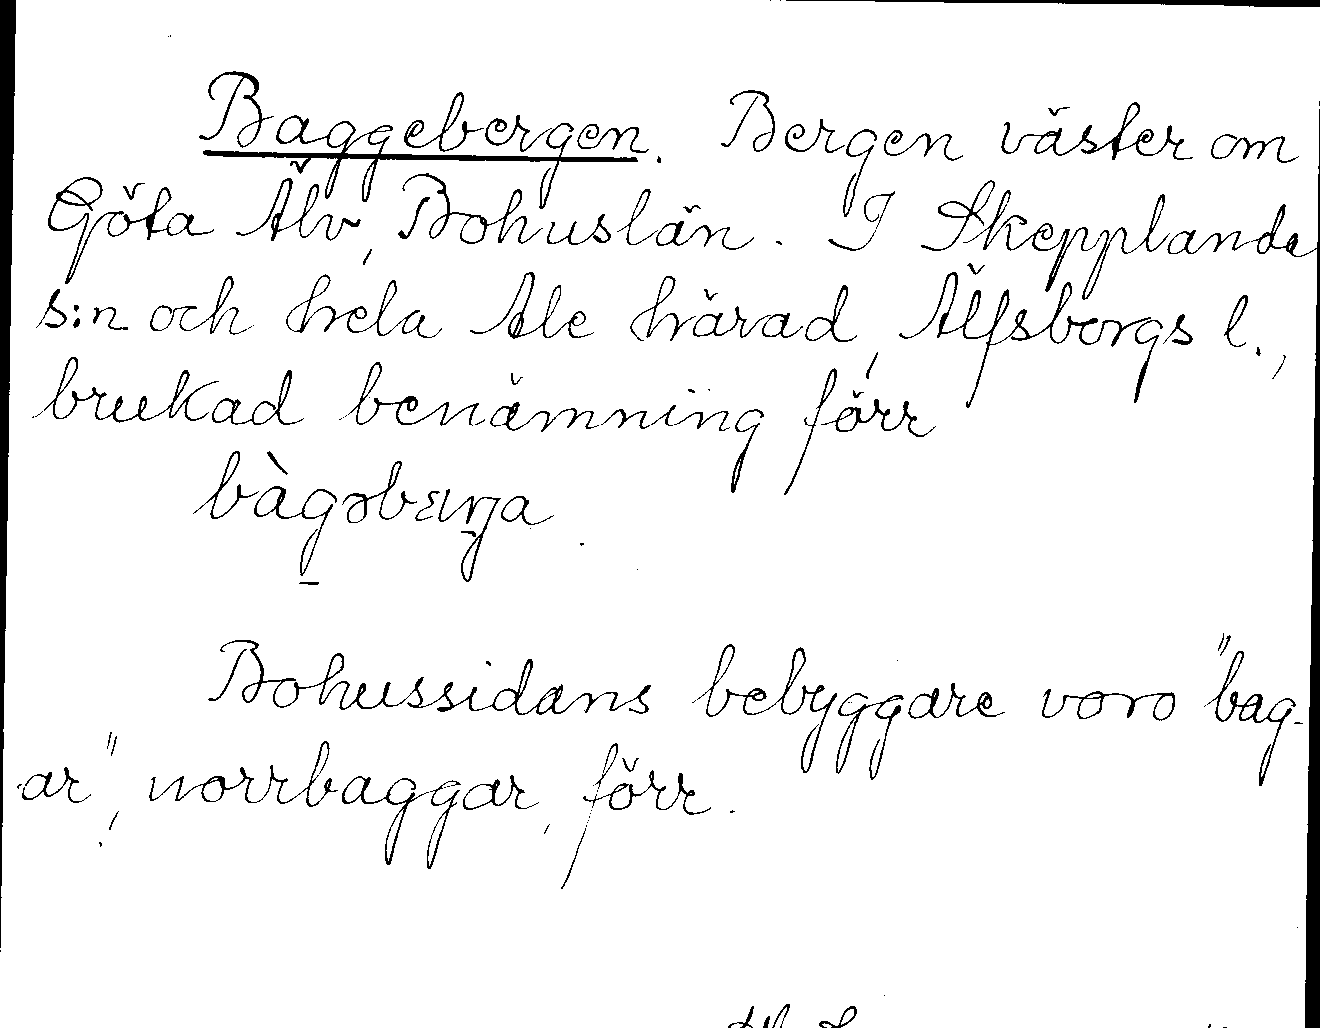 Baggebergen. Bergen väster om
Göta Älv, Bohuslän. I Skepplanda
s:n och hela Ale härad, Älfsborgs l.,
brukad benämning förr
bàgəbærja.
Bohussidans bebyggare voro "bag-
ar", norrbaggar, förr.